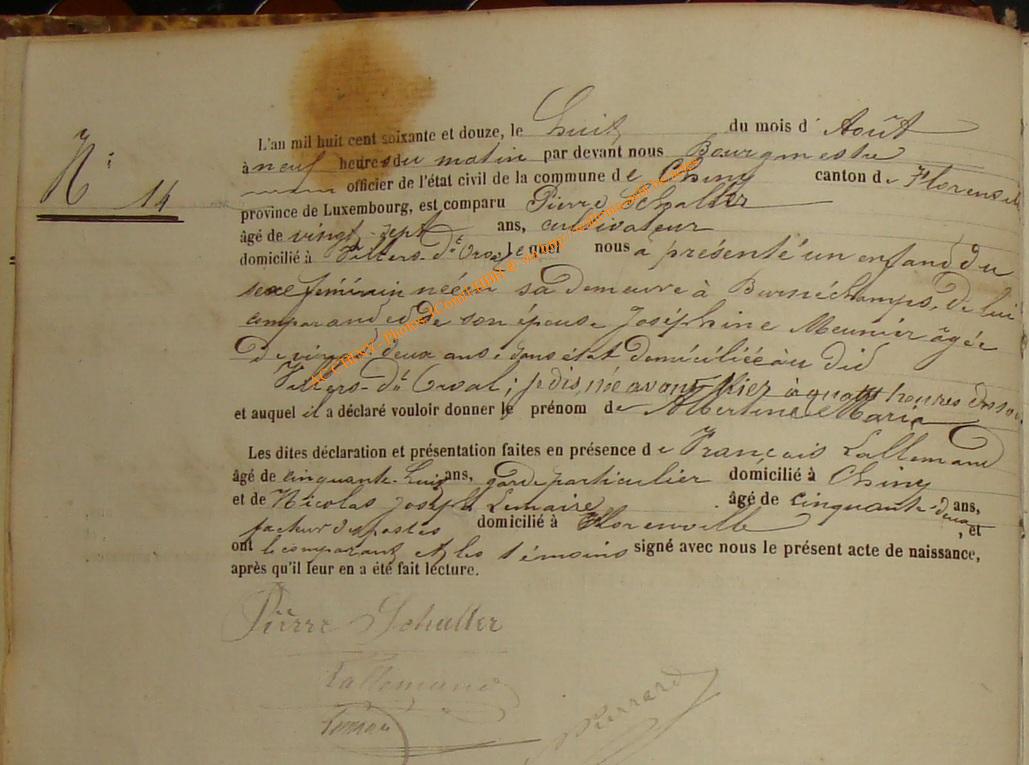 N° 14
L'an mil huit cent soixante et douze, le huit du mois d' Août
à neuf heures du matin par devant nous Bourgmestre
officier de l'état civil de la commune de Chiny canton de Florenville
province de Luxembourg, est comparu Pierre Schuller
âgé de vingt-sept ans, cultivateur
domicilié à Villers-dt Orval lequel nous a présenté un enfant du
sexe féminin née en sa demeure à de lui
comparant et de son épouse Joséphine Meunier âgée
de vingt deux ans sans état domiciliée au dit
Villers-dt Orval; née avant hier à quatre heures du soir
et auquel il a déclaré vouloir donner le prénom de Albertine Maria
Les dites déclaration et présentation faites en présence de François Lallemand
âgé de cinquante-huit ans, garde particulier domicilié à Chiny
et de Nicolas Joseph Lemaire âgé de cinquante-deux ans,
facteur des postes domicilié à Florenville, et
ont le comparant et les témoins signé avec nous le présent acte de naissance,
après qu'il leur en a été fait lecture.
Pierre Schuller
Lallemand
Pierrard